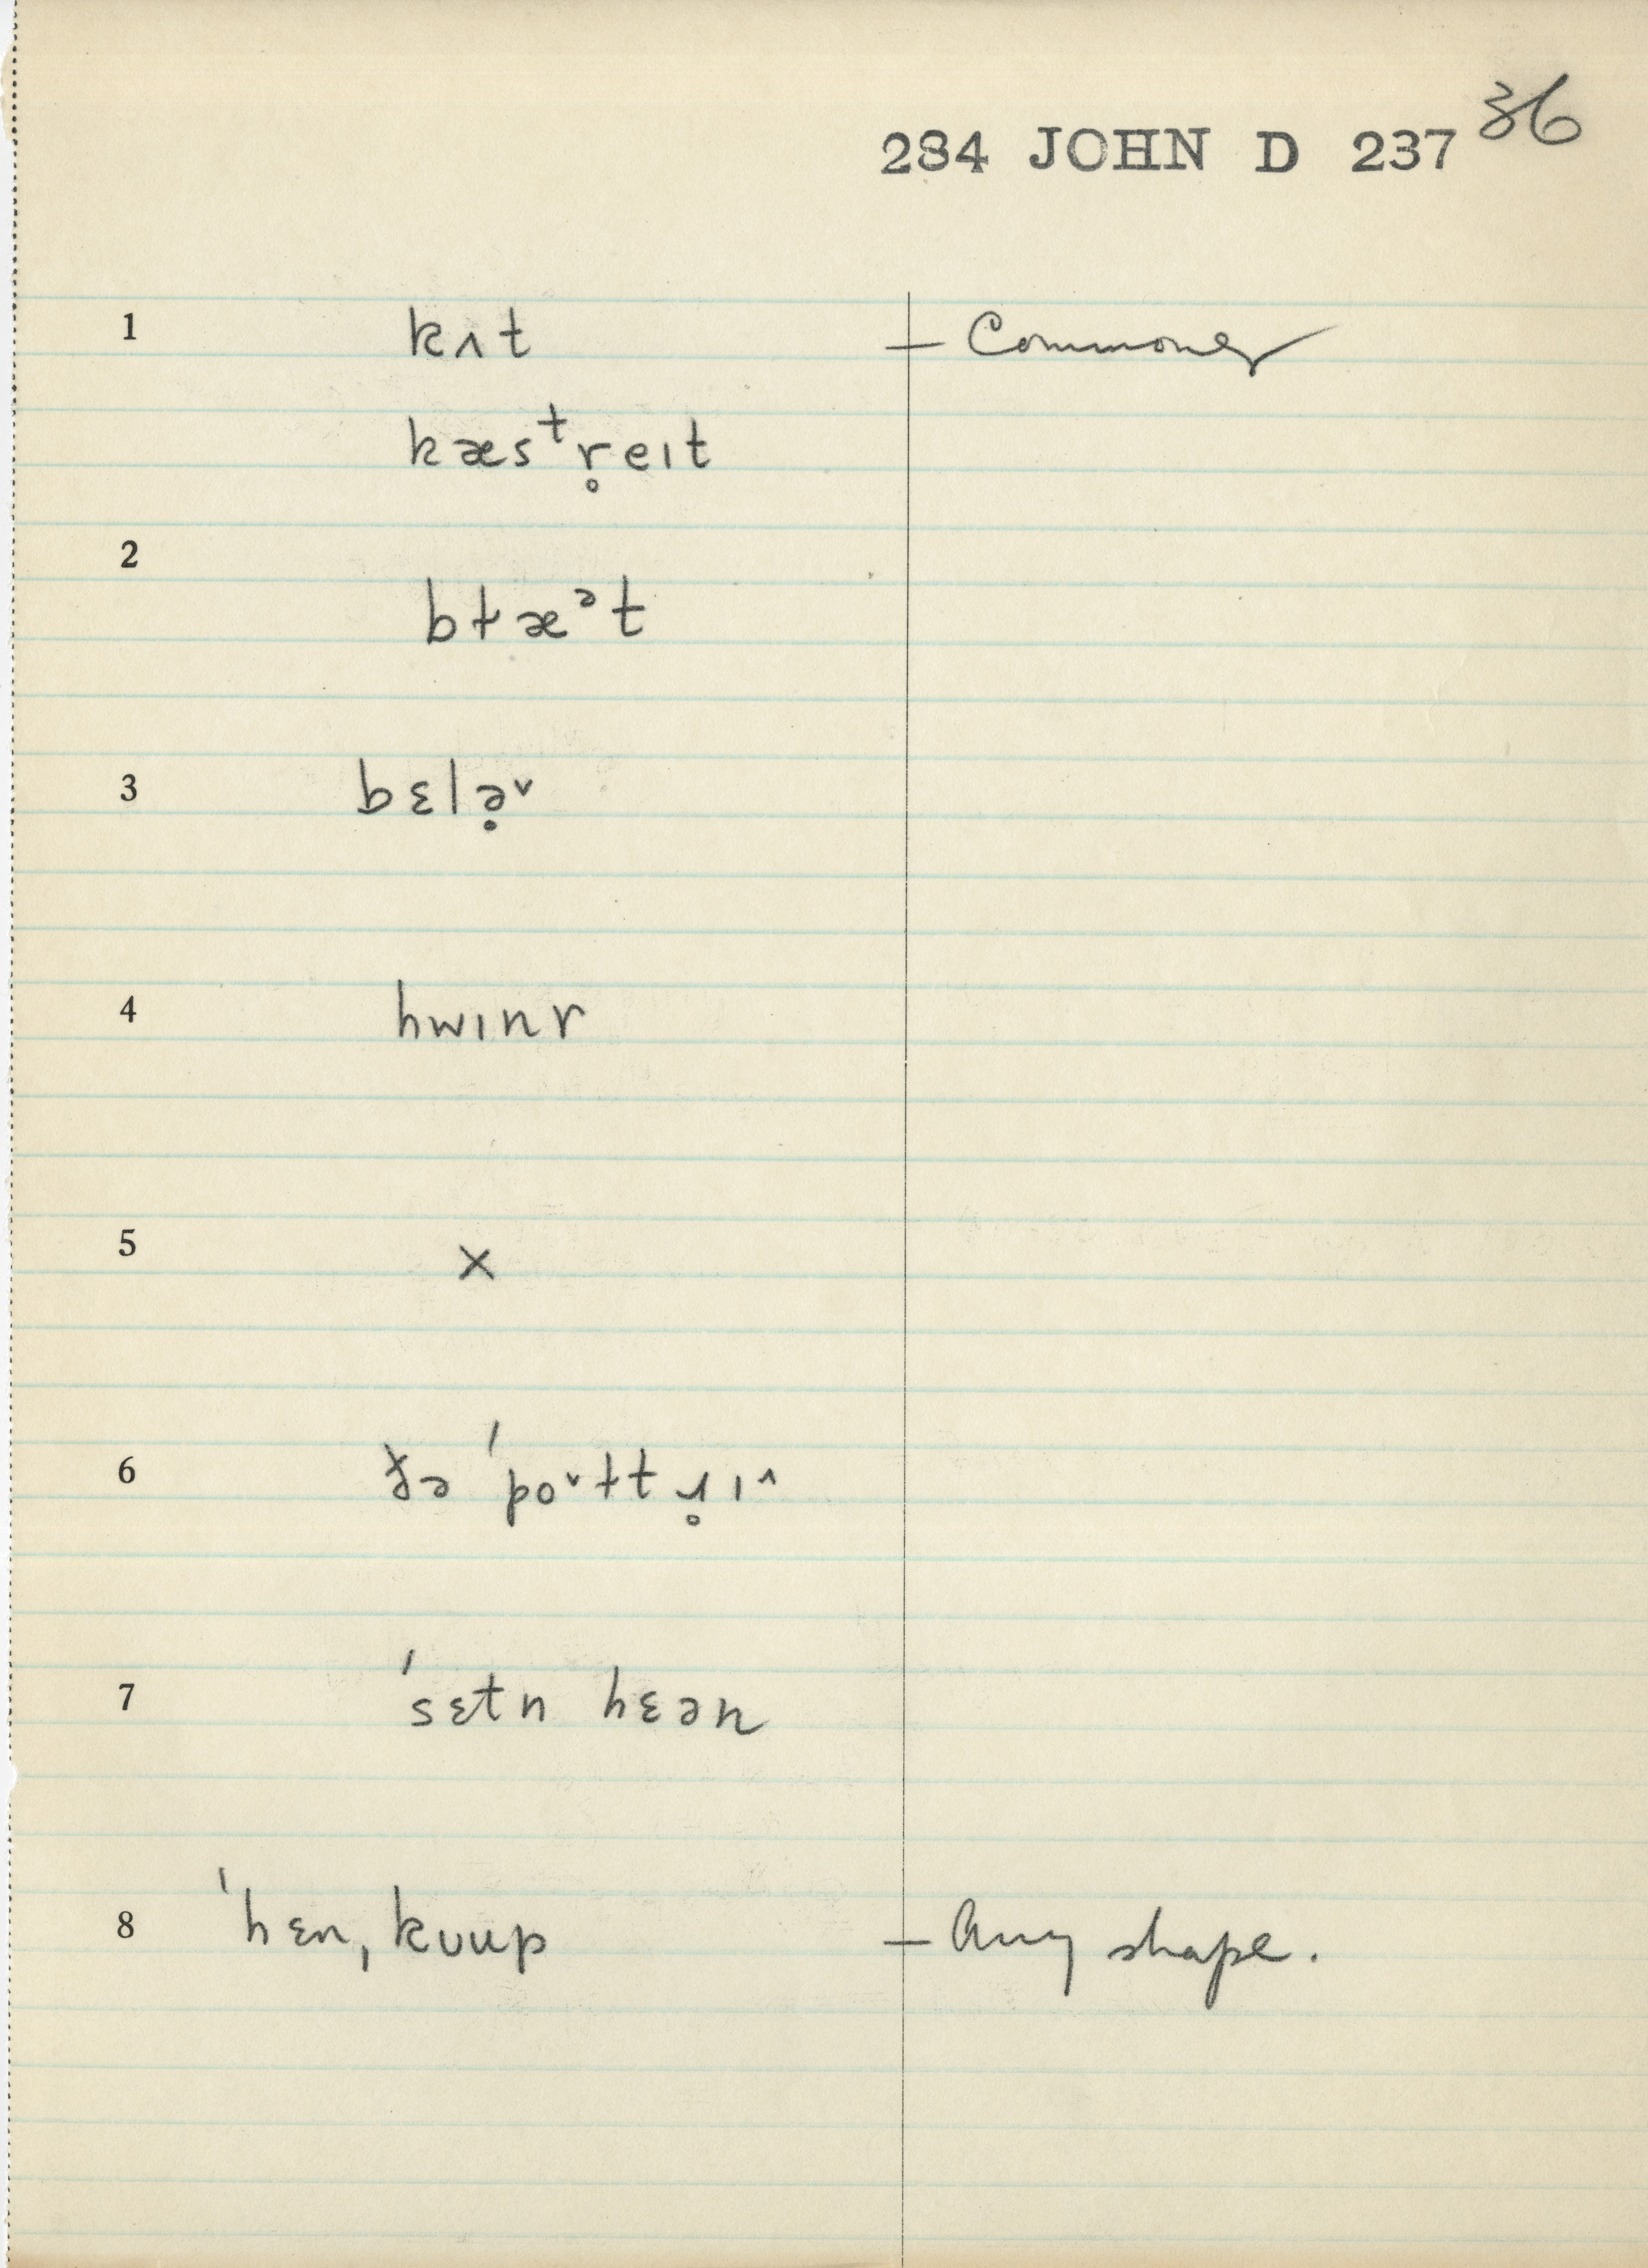 36
284 JOHN D 237
1 kʌt — Commoner
kæsᵗr̥eıt
2
bɫæᵊt
3 bɛlə̣˅
4 hwınr
5 ×
6 ðə ˈpo˅ɫtɹ̥ı^
7 ˈsɛtn hɛən
8 ˈhɛnˌkuup — Any shape.